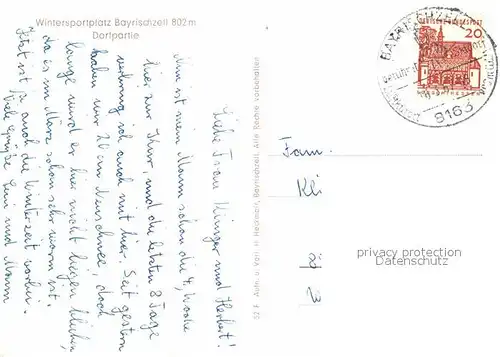 Wintersportplatz Bayrischzell 802 m
Dorfpartie
Liebe Frau Klinger und Herbert!
Nun ist mein Mann schon die 4. Woche
hier zur Kur, und die letzten 8 Tage
verbring ich auch mit hier. Seit gestern
haben wir 20 cm Neuschnee, doch
lange wird er hier nicht liegen bleiben,
da es im März schon sehr warm ist.
Jetzt ist ja auch die Winterzeit vorbei.
Viele Grüße und Mann
52 F Aufn. u. Verl. H. Bayrischzell. Alle Rechte vorbehalten
DEUTSCHE BUNDESPOST
20
8163
Fam.
Kli
privacy protection
Datenschutz